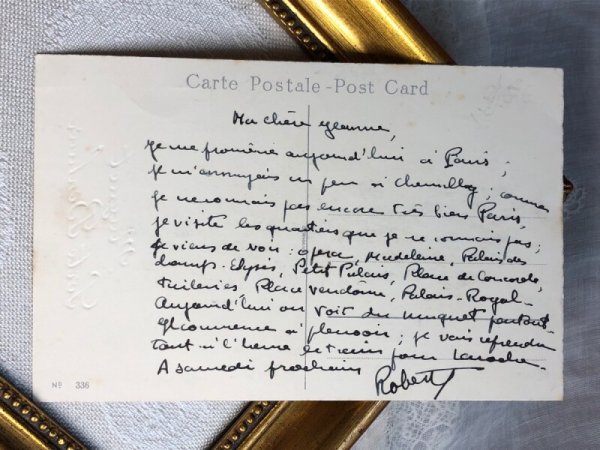 Carte Postale - Post Card
Ma chère Jeanne,
Je me promène aujourd'hui à Paris;
je m'ennuyais un peu à Chemilly; comme
je ne connais pas encore très bien Paris,
je visite les quartiers que je ne connais pas;
je viens de voir: opéra, Madeleine, Palais des
Champs-Elysés, Petit Palais, Place de Concorde,
Tuileries, Place Vendôme, Palais-Royal-
Aujourd'hui on voit du muguet partout-
Il commence à pleuvoir; je vais reprendre
tout à l'heure le train pour
A samedi prochain
Robert
No 336